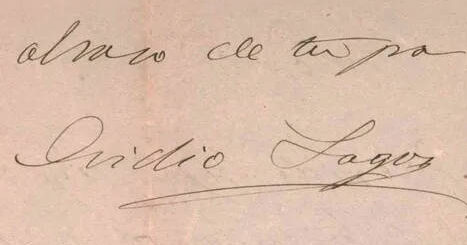 abrazo de tu pa
Ovidio Lagos